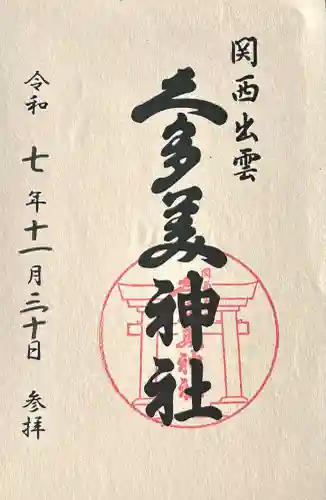 関西出雲
久多美神社
令和 七年十一月三十日 参拝